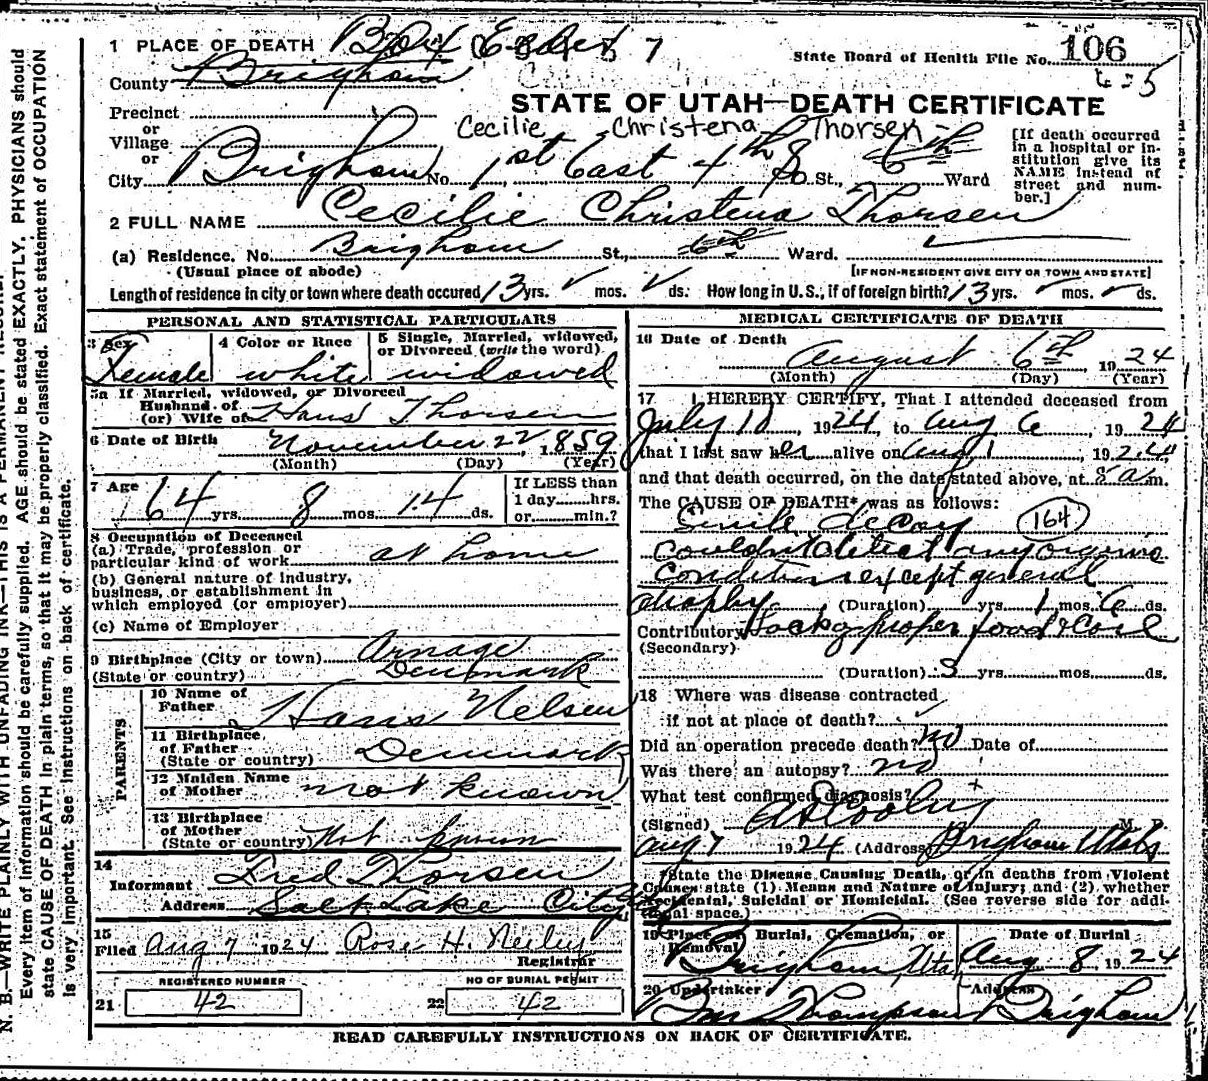 N. B.—WRITE PLAINLY WITH UNFADING INK—THIS IS A PERMANENT RECORD.
Every item of information should be carefully supplied. AGE should be stated EXACTLY. PHYSICIANS should
state CAUSE OF DEATH in plain terms, so that it may be properly classified. Exact statement of OCCUPATION
is very important. See instructions on back of certificate.
1 PLACE OF DEATH Box Elder 7
State Board of Health File No. 106
County Brigham
STATE OF UTAH—DEATH CERTIFICATE
Precinct
or
Village
or
Cecilie Christena Thorsen
City Brigham No. 1st East 4th So St., 6th Ward
[If death occurred
in a hospital or in-
stitution give its
NAME instead of
street and num-
ber.]
2 FULL NAME Cecilie Christena Thorsen
(a) Residence. No. Brigham St., 6th Ward.
(Usual place of abode)
[IF NON-RESIDENT GIVE CITY OR TOWN AND STATE]
Length of residence in city or town where death occured 13 yrs. mos. ds. How long in U.S., if of foreign birth? 13 yrs. mos. ds.
PERSONAL AND STATISTICAL PARTICULARS
3 Sex
Female
4 Color or Race
white
5 Single, Married, widowed,
or Divorced (write the word)
widowed
5a If Married, widowed, or Divorced
Husband of
(or) Wife of Hans Thorsen
6 Date of Birth November 22, 1859
(Month) (Day) (Year)
7 Age
64 yrs. 8 mos. 14 ds.
If LESS than
1 day hrs.
or min.?
8 Occupation of Deceased
(a) Trade, profession or
particular kind of work at home
(b) General nature of industry,
business, or establishment in
which employed (or employer)
(c) Name of Employer
9 Birthplace (City or town)
(State or country) Denmark
PARENTS
10 Name of
Father Hans Nelsen
11 Birthplace
of Father
(State or country) Denmark
12 Maiden Name
of Mother not known
13 Birthplace
of Mother
(State or country) Not known
14
Informant Fred Thorsen
Address Salt Lake City
15
Filed Aug 7 1924 Rose H.
Registrar
REGISTERED NUMBER
21 42
NO OF BURIAL PERMIT
22 42
MEDICAL CERTIFICATE OF DEATH
16 Date of Death
August 6th, 1924
(Month) (Day) (Year)
17 I HEREBY CERTIFY, That I attended deceased from
July 1924, to Aug 6, 1924
that I last saw her alive on Aug 1, 1924
and that death occurred, on the date stated above, at 8 a m.
The CAUSE OF DEATH* was as follows:
Senile decay 164
Couldn't detect any organic
condition except general
atrophy (Duration) yrs. 1 mos. 6 ds.
Contributory Lack of proper food &
(Secondary)
(Duration) 3 yrs. mos. ds.
18 Where was disease contracted
if not at place of death?
Did an operation precede death? No Date of
Was there an autopsy? no
What test confirmed diagnosis?
(Signed) M. D.
Aug 7 1924 (Address) Brigham Utah
*State the Disease Causing Death, or in deaths from Violent
Causes state (1) Means and Nature of Injury; and (2) whether
Accidental, Suicidal or Homicidal. (See reverse side for addi-
tional space.)
19 Place of Burial, Cremation, or
Removal
Brigham Utah
Date of Burial
Aug 8, 1924
20 Undertaker
Thompson
Address
Brigham
READ CAREFULLY INSTRUCTIONS ON BACK OF CERTIFICATE.